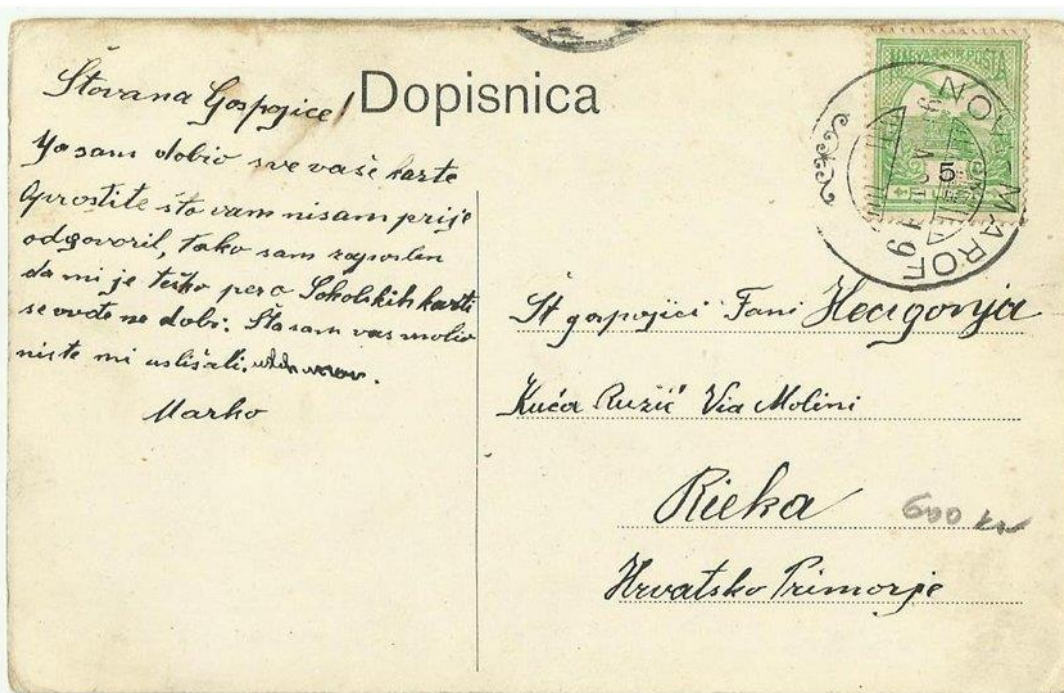 Dopisnica
Štovana Gospojice!
Ja sam dobio sve vaše karte
Oprostite što vam nisam prije
odgovoril, tako sam zaposlen
da mi je teško pero Sokolskih karti
se ovdé ne dobi. Šta sam vas molio
niste mi uslišali.
Marko
MAGYAR KIR. POSTA
5
NOVI MAROF
Št gospojici Fani Hecigonja
Kuća Ružić Via Molini
Rieka
600 kn
Hrvatsko Primorje